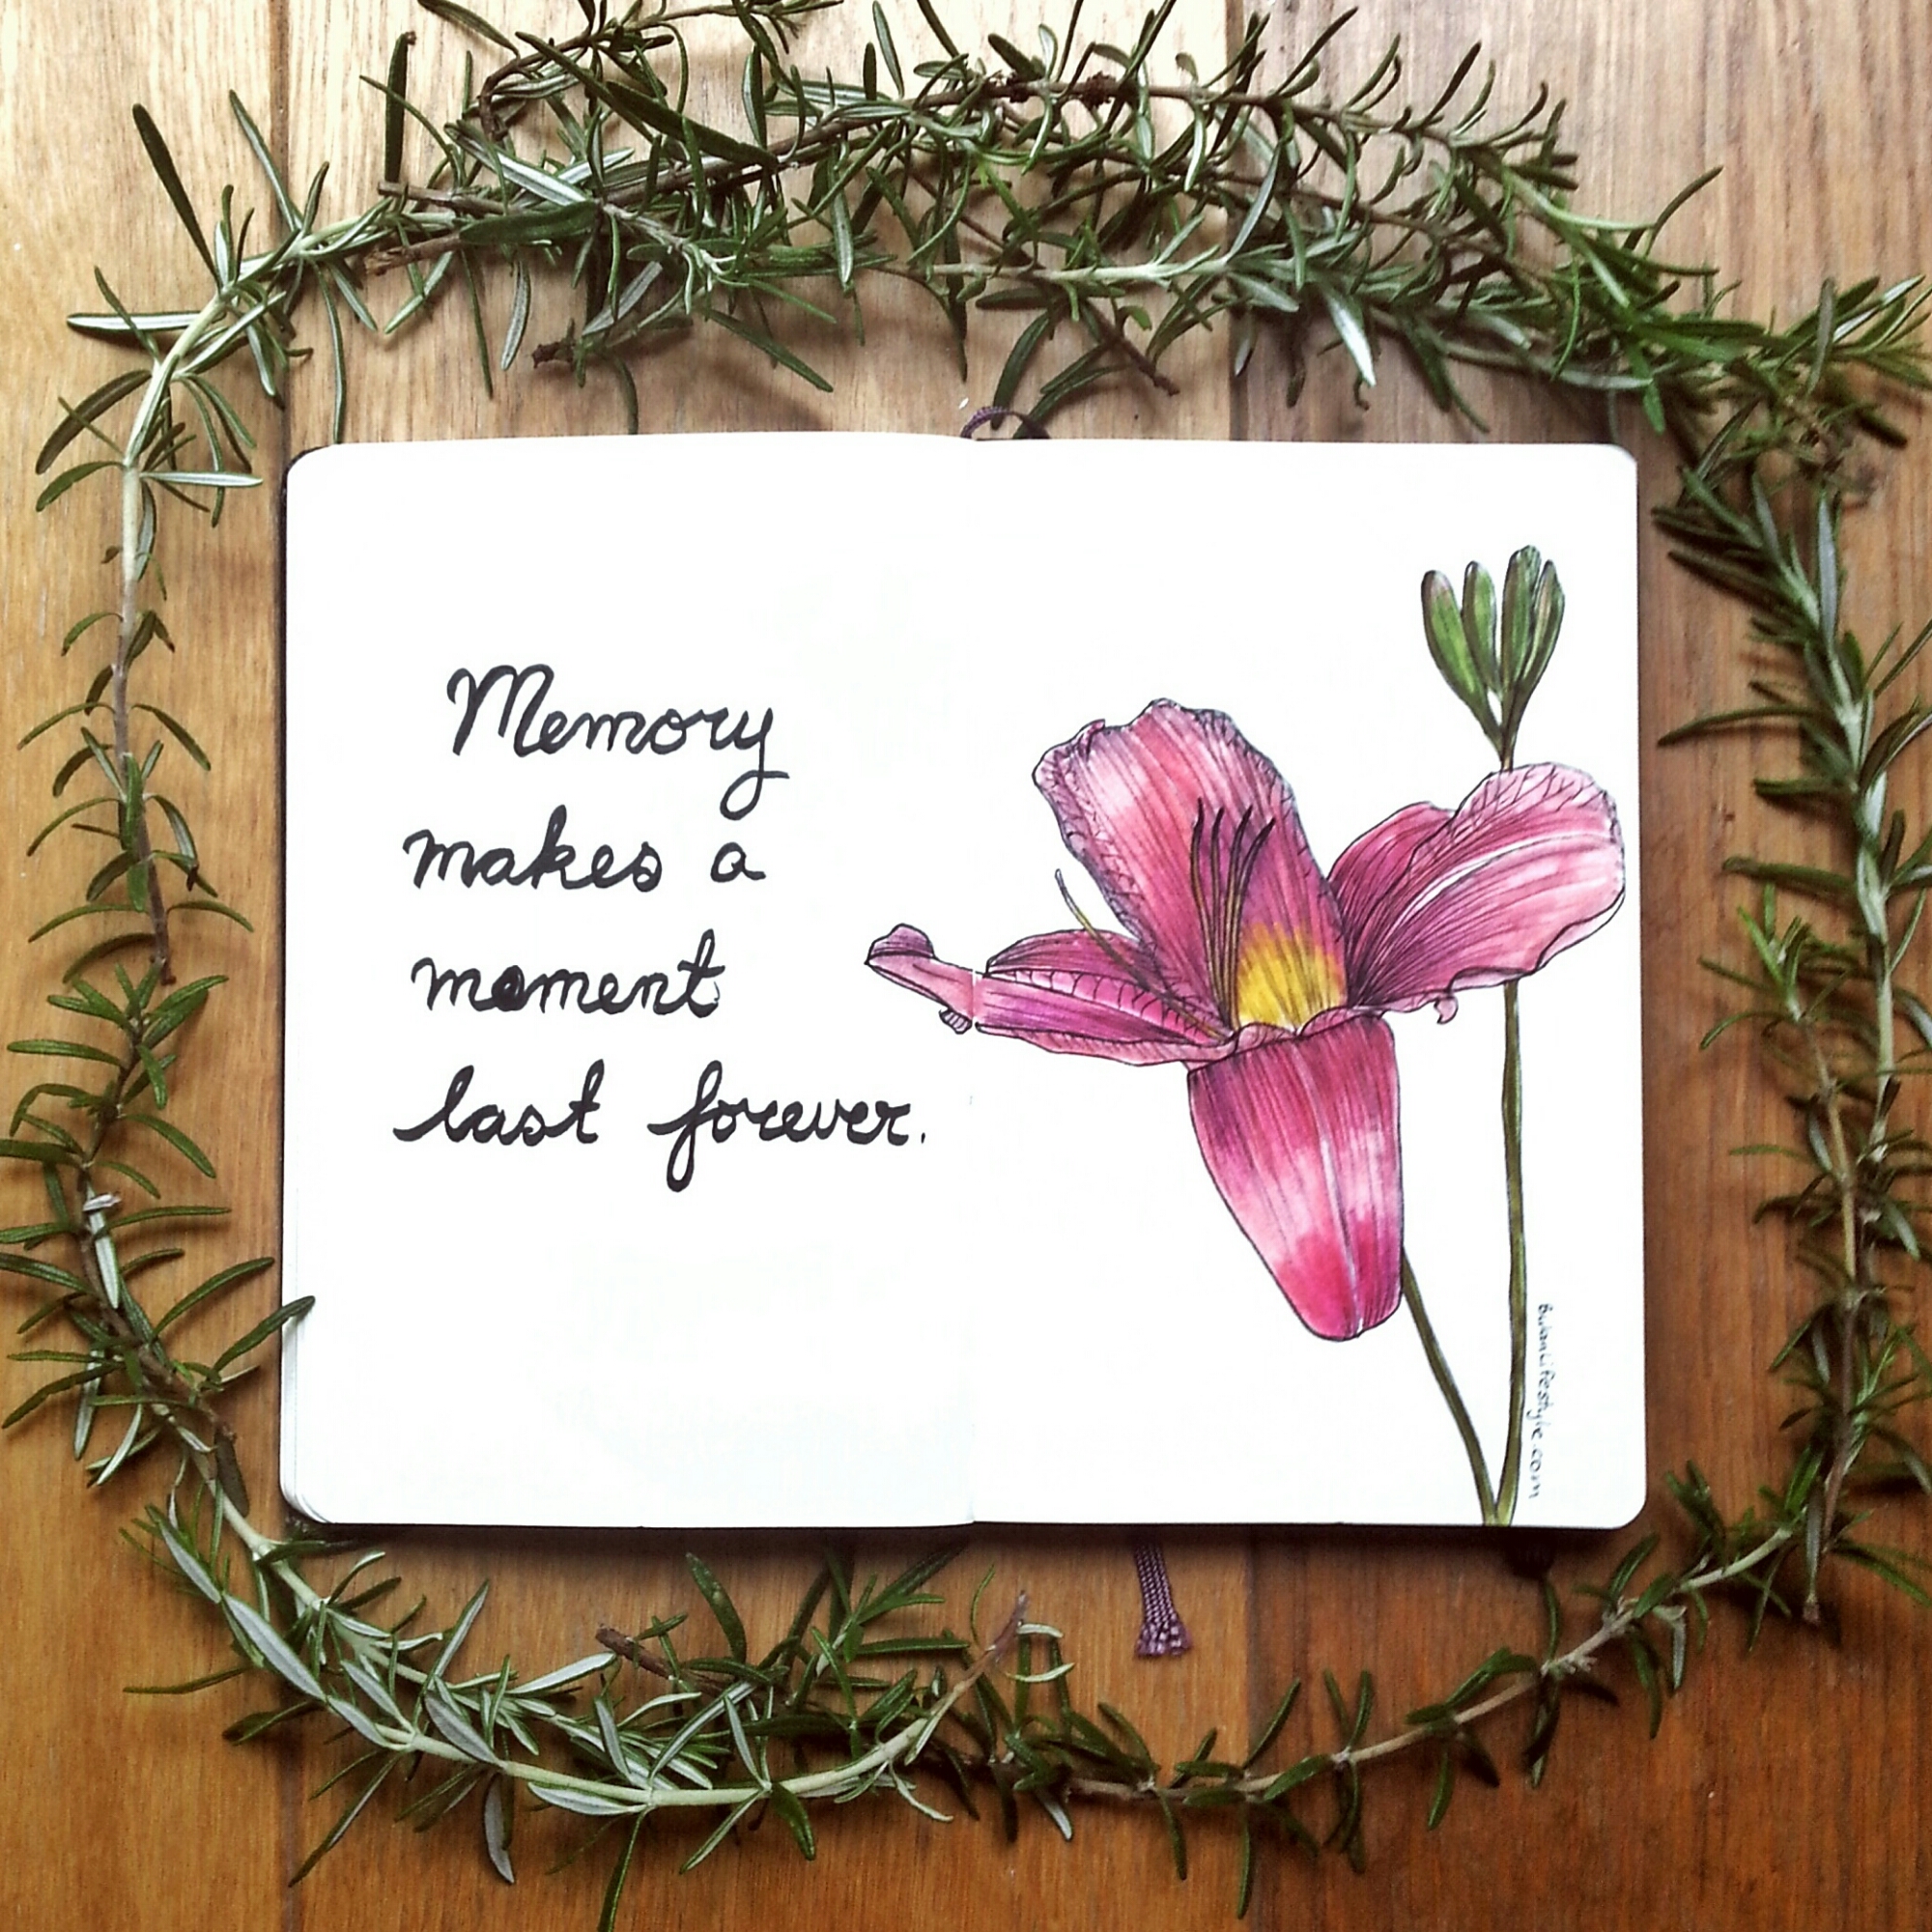 Memory
makes a
moment
last forever.
BulanLifestyle.com